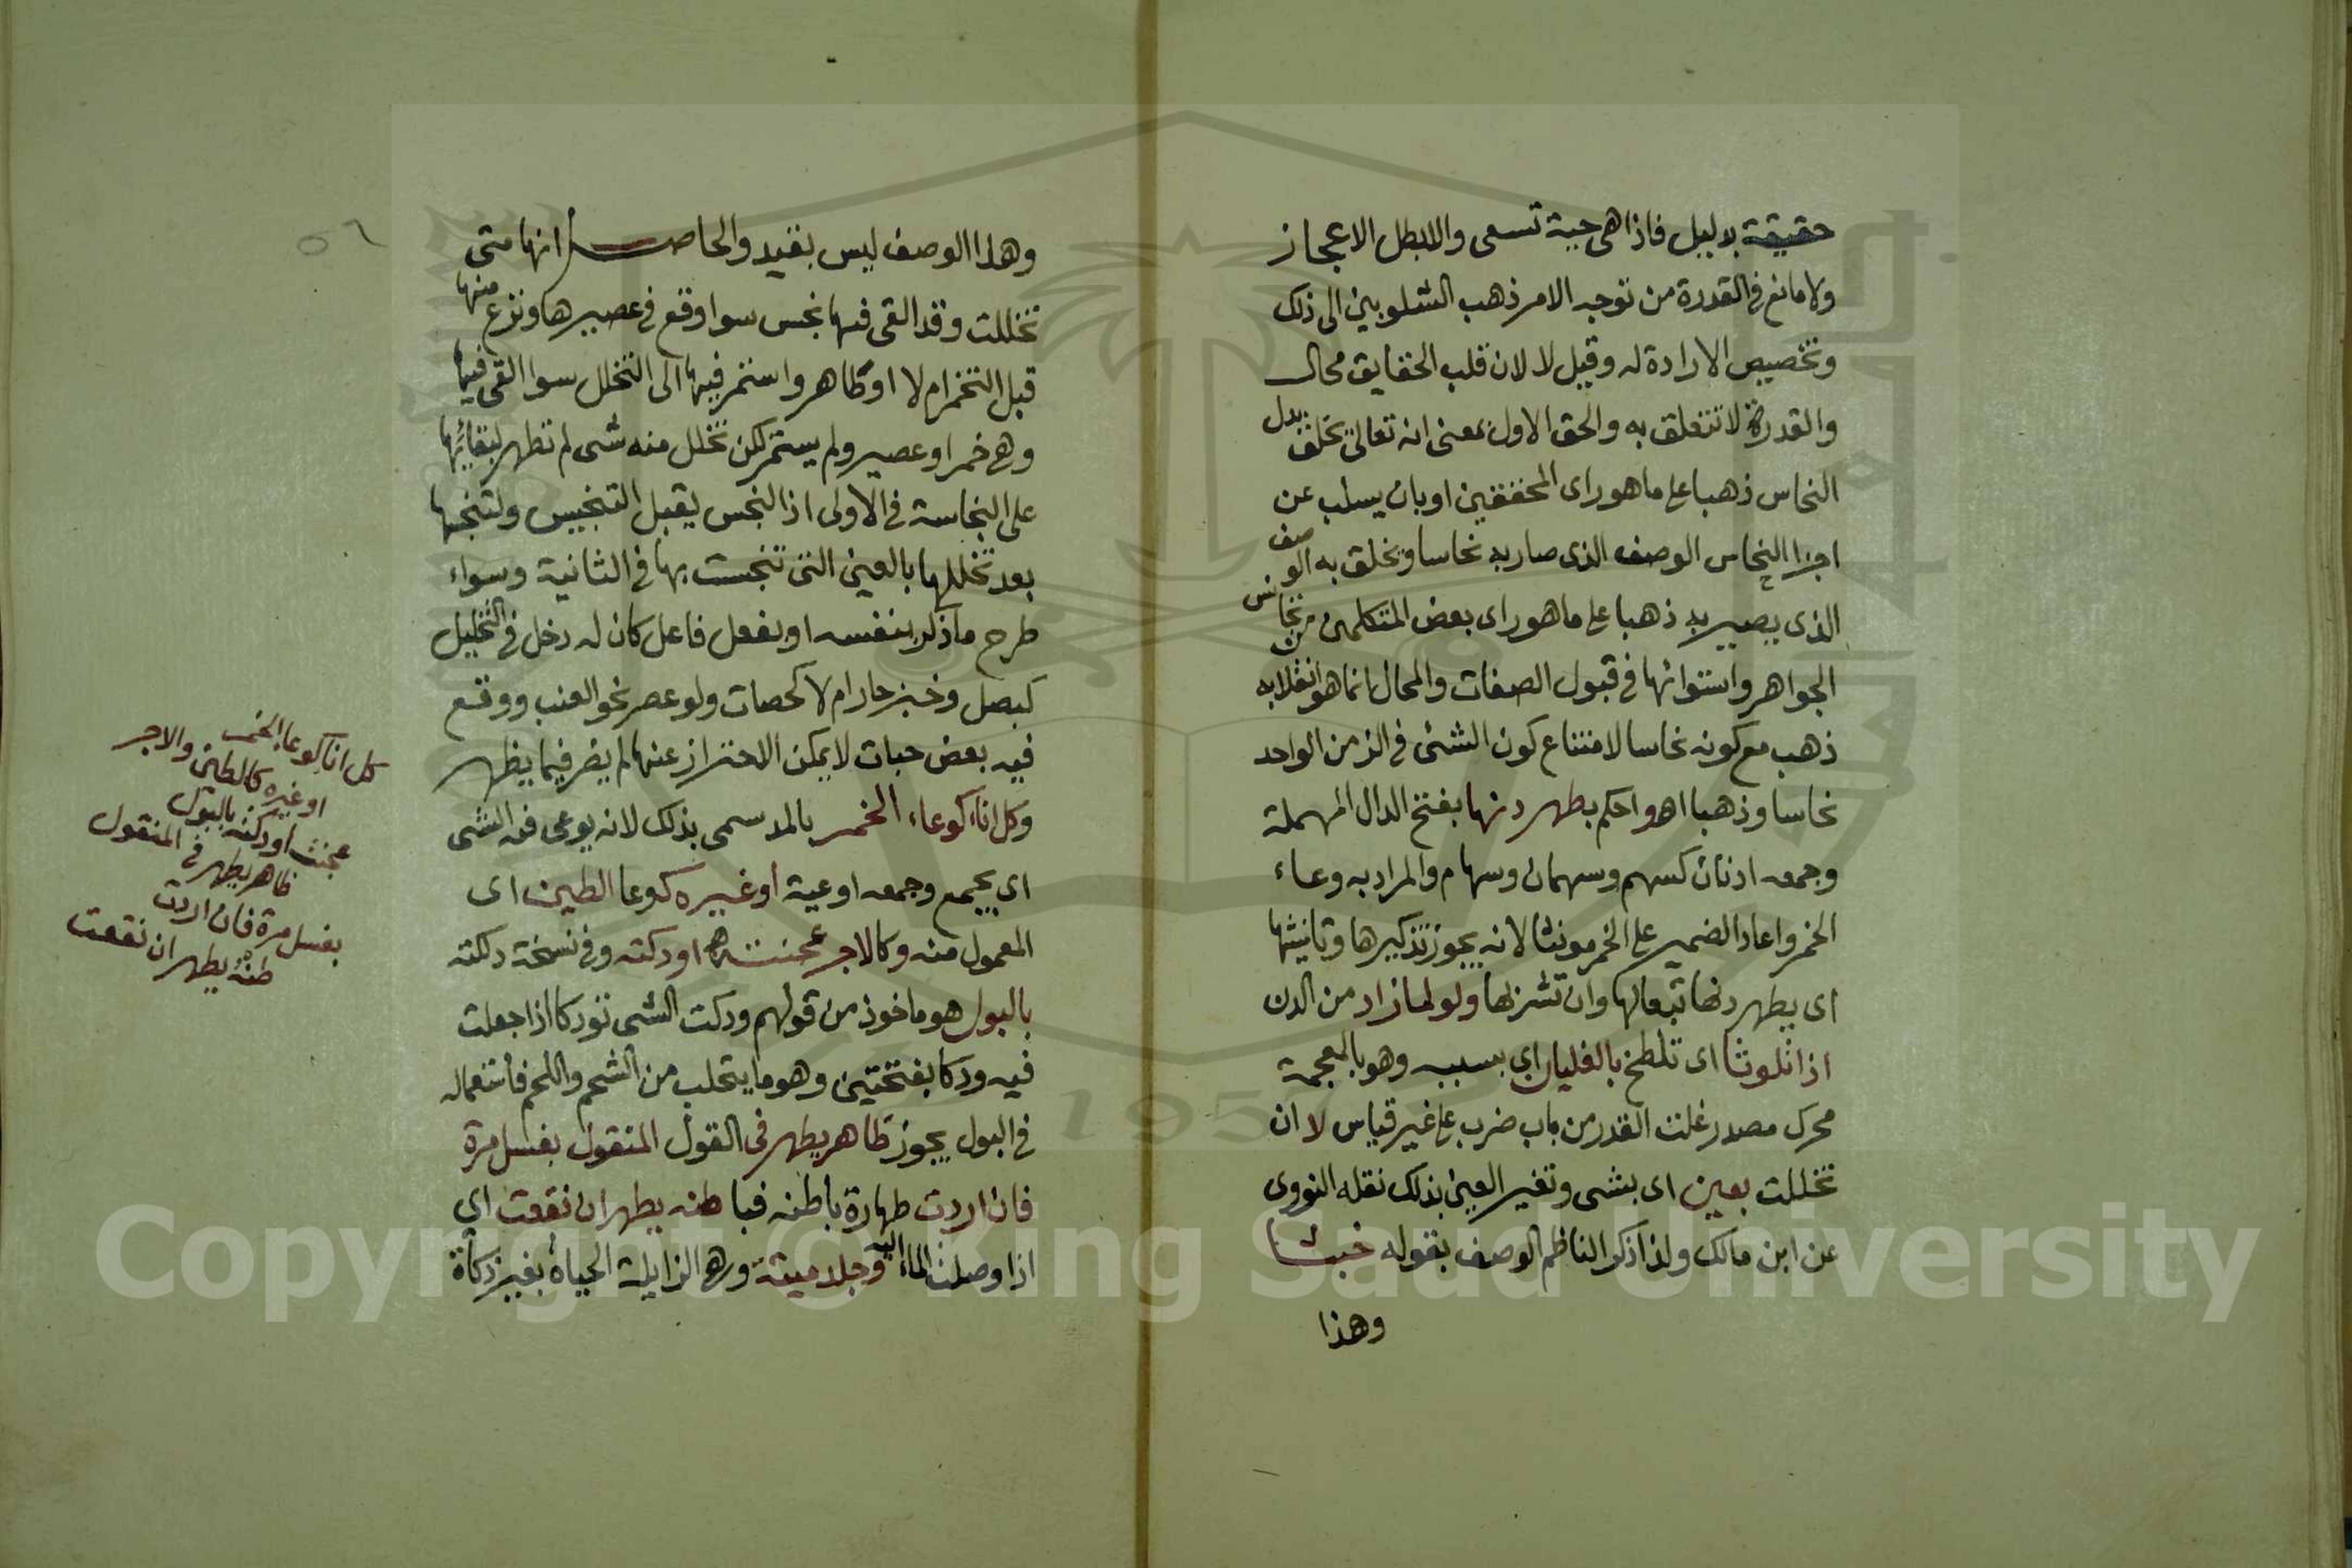 حقيقة بدليل فاذا هى حية تسعى والالبطل الاعجاز
ولا مانع فى القدرة من توجه الامر ذهب الشلوبين الى ذلك
وتخصيص الارادة له وقيل لا لان قلب الحقايق محال
والقدرة لا تتعلق به والحق الاول بمعنى انه تعالى يخلق بدل
النحاس ذهبا على ماهو راى المحققين او بان يسلب عن
اجزا النحاس الوصف الذى صار به نحاسا ويخلق به الوصف
الذى يصير به ذهبا على ماهو راى بعض المتكلمين من تجانس
الجواهر واستوائها فى قبول الصفات والمحال انما هو انقلابه
ذهب مع كونه نحاسا لامتناع كون الشئ فى الزمن الواحد
نحاسا وذهبا اهو احكم بطهر دنها بفتح الدال المهملة
وجمعه ادنان كسهم وسهمان وسهام والمراد به وعاء
الخمر واعاد الضمير على الخمر مونثا لانه يجوز تذكيرها وتانيثها
اى يطهر دنها تبعا لها وان تشربها ولو لما زاد من الدن
اذا تلوثا اى تلطخ بالغليان اي بسببه وهو بالمعجمة
محرك مصدر غلت القدر من باب ضرب على غير قياس لا ان
تخللت بعين اى بشى وتغير العين بذلك نقله النووى
عن ابن مالك ولذا ذكر الناظم الوصف بقوله خبثا
وهذا
وهذا الوصف ليس بقيد والحاصل انها متى
تخللت وقد القى فيها نجس سوا وقع فى عصيرها ونزع منها
قبل التخمر ام لا او طاهر واستمر فيها الى التخلل سوا القى فيها
وهى خمر او عصير ولم يستمر لكن تخلل منه شى لم تطهر لبقايها
على النجاسة فى الاولى اذ النجس يقبل التنجيس ولتنجسها
بعد تخللها بالعين التى تنجست بها فى الثانية وسواء
طرح ما ذكر بنفسه او بفعل فاعل كان له دخل فى التخليل
كبصل وخبز حار ام لا كحصات ولو عصر نحو العنب ووقع
فيه بعض حبات لا يمكن الاحتراز عنها لم يضر فيما يظهر
وكل اناء كوعاء الخمر بالمد سمى بذلك لانه يوعى فيه الشى
اى يجمع وجمعه اوعية او غيره كوعا الطين اى
المعمول منه وكالاجر عجنته او دكته وفى نسخة دلكته
بالبول هو ماخوذ من قولهم ودكت الشى توديكا اذا جعلت
فيه ودكا بفتحتين وهو ما يتحلب من الشحم واللحم فاستعماله
فى البول يجوز ظاهر يطهر فى القول المنقول بغسل مرة
فان اردت طهارة باطنه فباطنه يطهر ان نقعت اي
اذا وصلت الماء اليه وجلد ميتة وهى الزايلة الحياة بغير ذكاة
كل انا كوعا الخمر
او غيره كالطين والاجر
عجنته او دكته بالبول
ظاهر يطهر فى المنقول
بغسل مرة فان اردت
طنه يطهر ان نقعت
٥٦
Copyright © King Saud University
1957